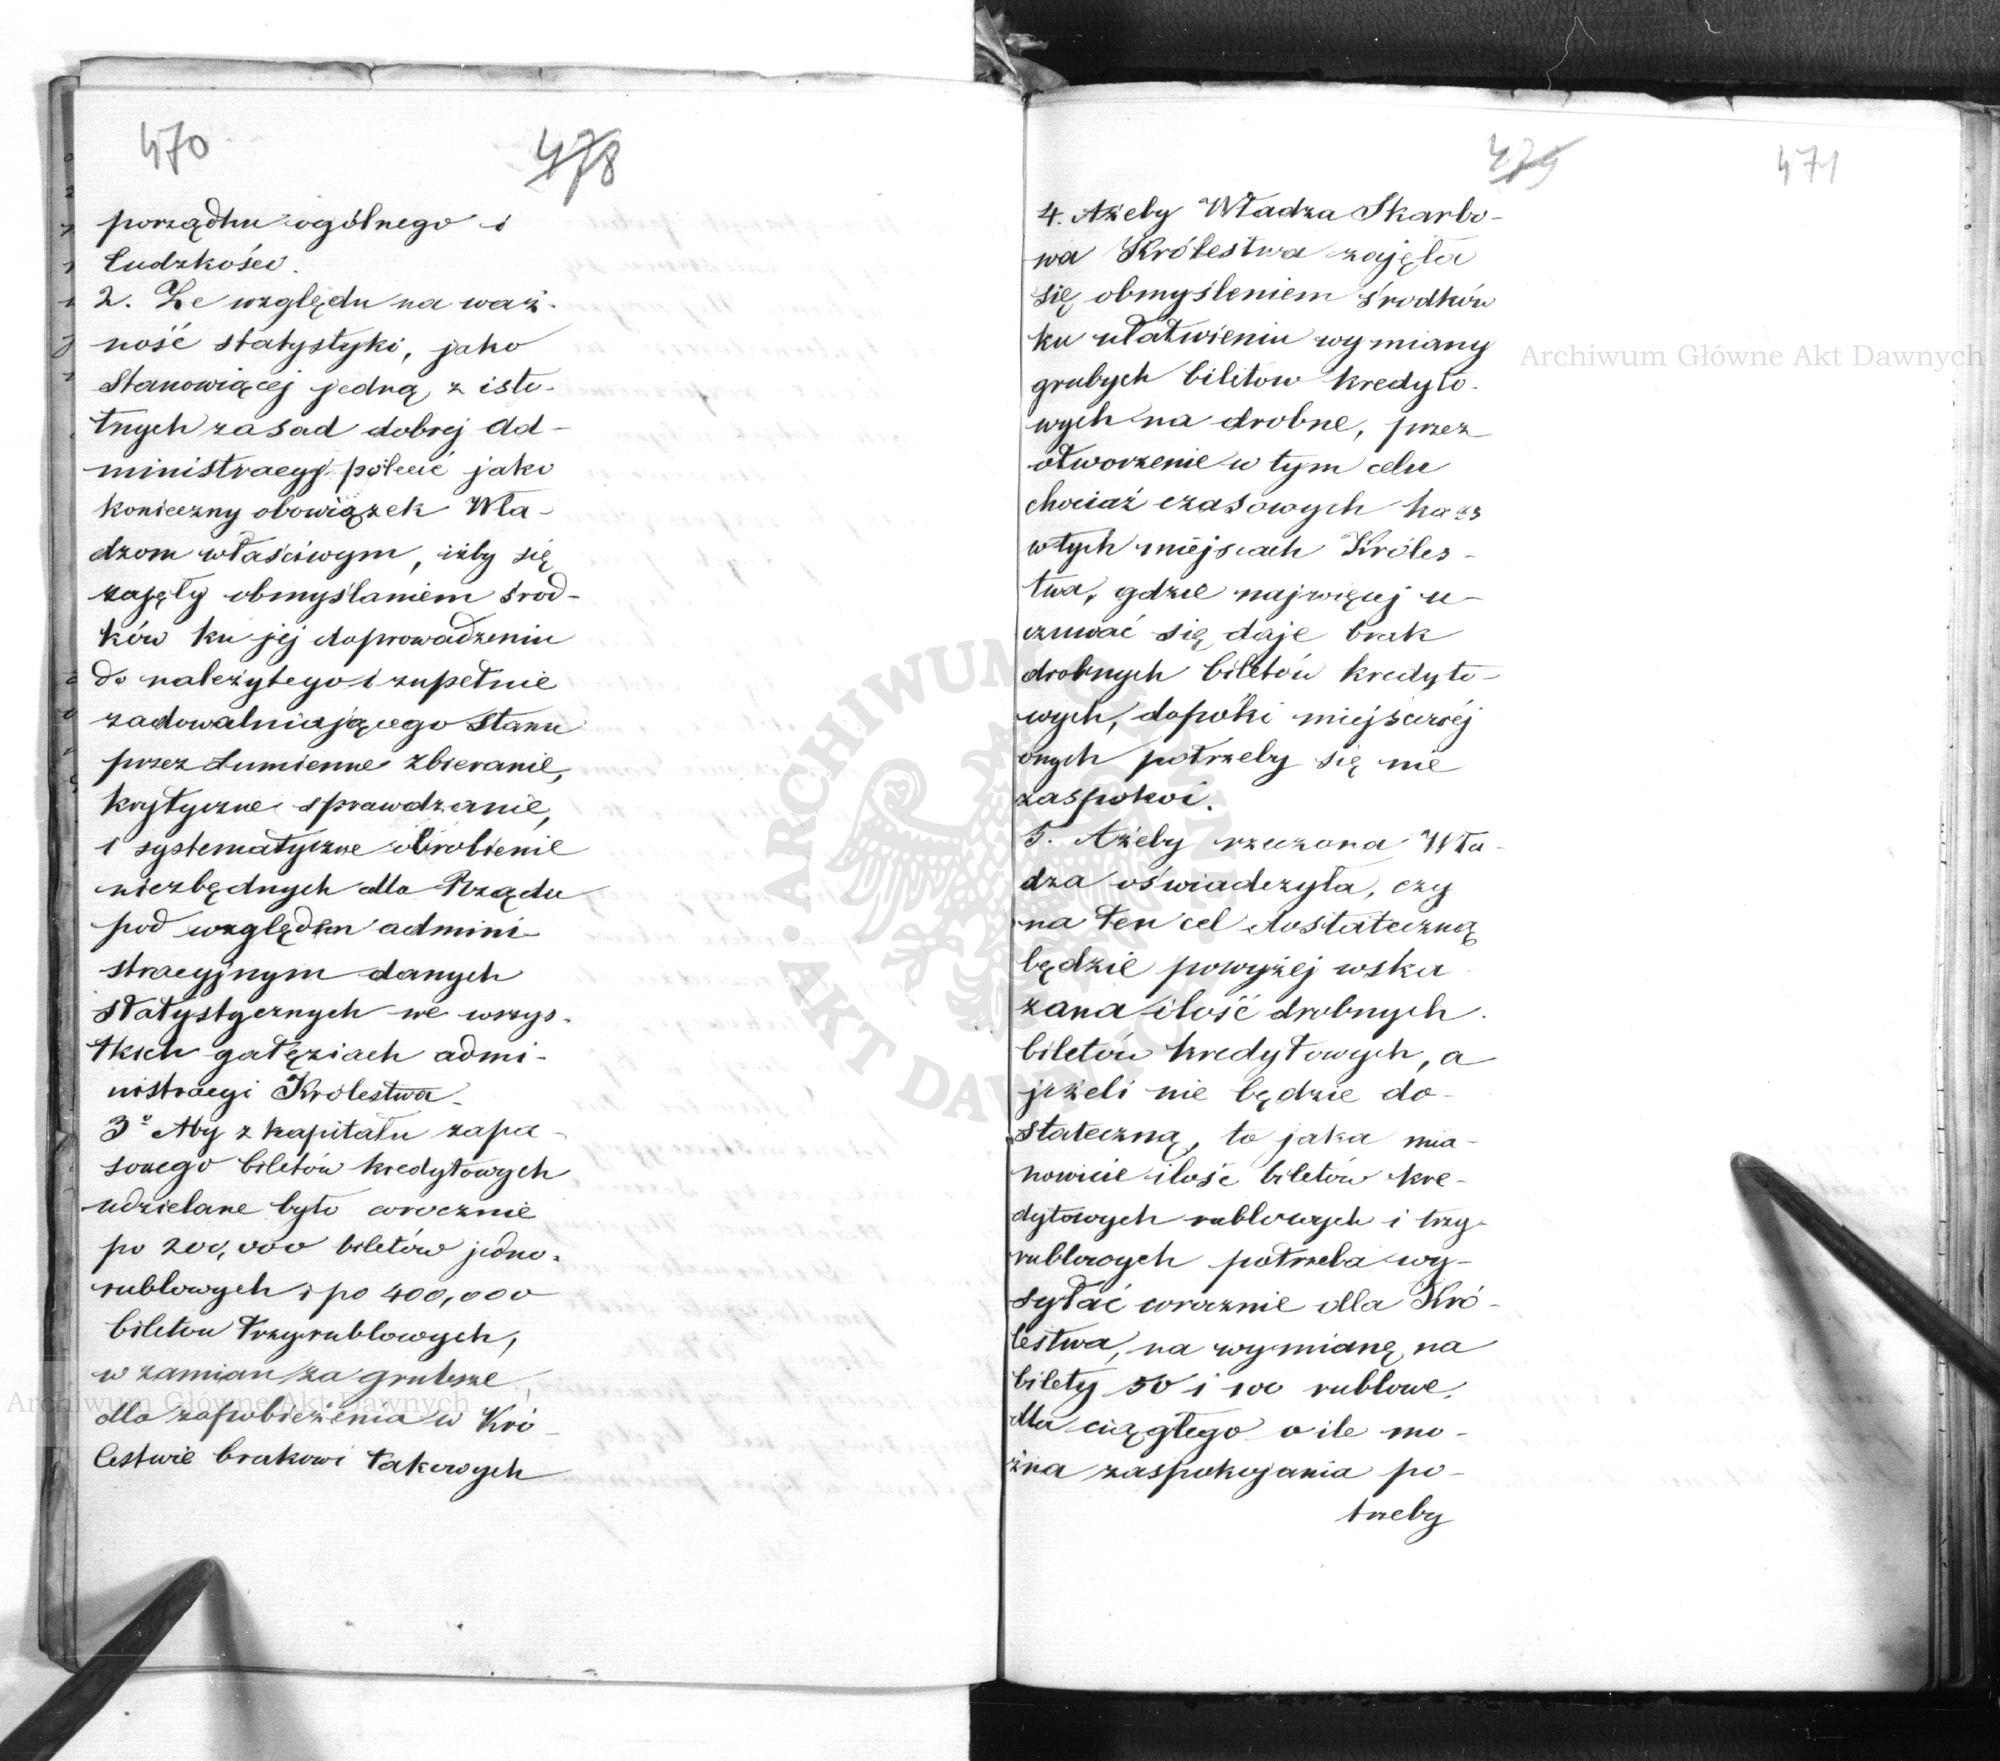 470
478
porządku ogólnego i
ludzkości.
2. Ze względu na waż-
ność statystyki, jako
stanowiącej jedną z isto-
tnych zasad dobrej Ad-
ministracyj polecić jako
konieczny obowiązek Wła-
dzom właściwym, iżby się
zajęły obmyślaniem środ-
ków ku jej doprowadzeniu
do należytego i zupełnie
zadowalniającego stanu
przez sumienne zbieranie,
krytyczne sprawdzanie,
i systematyczne obrobienie
niezbędnych dla Rządu
pod względem admini-
stracyjnym danych
statystycznych we wszys-
tkich gałęziach admi-
nistracyi Królestwa.
3º Aby z kapitału zapa-
sowego biletów kredytowych
udzielane było corocznie
po 200,000 biletów jedno-
rublowych i po 400,000
biletów trzyrublowych,
w zamian za grubsze,
dla zapobieżenia w Kró-
lestwie brakowi takowych
479
471
4. Ażeby Władza Skarbo-
wa Królestwa zajęła
się obmyśleniem środków
ku ułatwieniu wymiany
grubych biletow kredyto-
wych na drobne, przez
otworzenie w tym celu
chociaż czasowych kass
w tych miejscach Króles-
twa, gdzie najwięcej u-
czuwać się daje brak
drobnych biletów kredyto-
wych, dopóki miejscowej
onych potrzeby się nie
zaspokoi.
5. Ażeby rzeczona Wła-
dza oświadczyła, czy
na ten cel dostateczną
będzie powyżej wska-
zana ilość drobnych
biletów kredytowych, a
jeżeli nie będzie do-
stateczną, to jaka mia-
nowicie ilość biletów kre-
dytowych rublowych i trzy-
rublowych potrzeba wy-
syłać corocznie dla Kró-
lestwa, na wymianę na
bilety 50 i 100 rublowe,
dla ciągłego o ile mo-
żna zaspokojania po-
trzeby
Archiwum Główne Akt Dawnych
Archiwum Główne Akt Dawnych
ARCHIWUM GŁÓWNE · AKT DAWNYCH ·